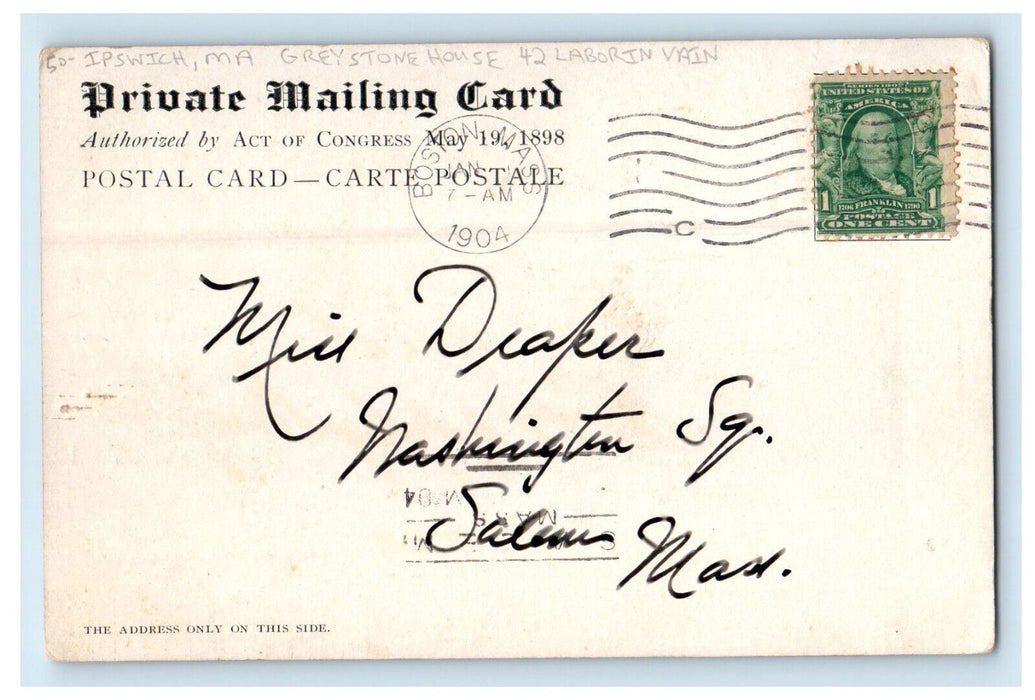 50- IPSWICH, MA GREYSTONE HOUSE 42 LABOR IN VAIN
Private Mailing Card
Authorized by ACT OF CONGRESS May 19, 1898
POSTAL CARD — CARTE POSTALE
BOSTON, MASS
JAN
7 - AM
1904
C
SERIES 1902
UNITED STATES OF
AMERICA
1 1706 FRANKLIN 1790 1
POSTAGE
ONE CENT
Miss Draper
Washington Sq.
Salem
Mass.
MASS
'04
THE ADDRESS ONLY ON THIS SIDE.